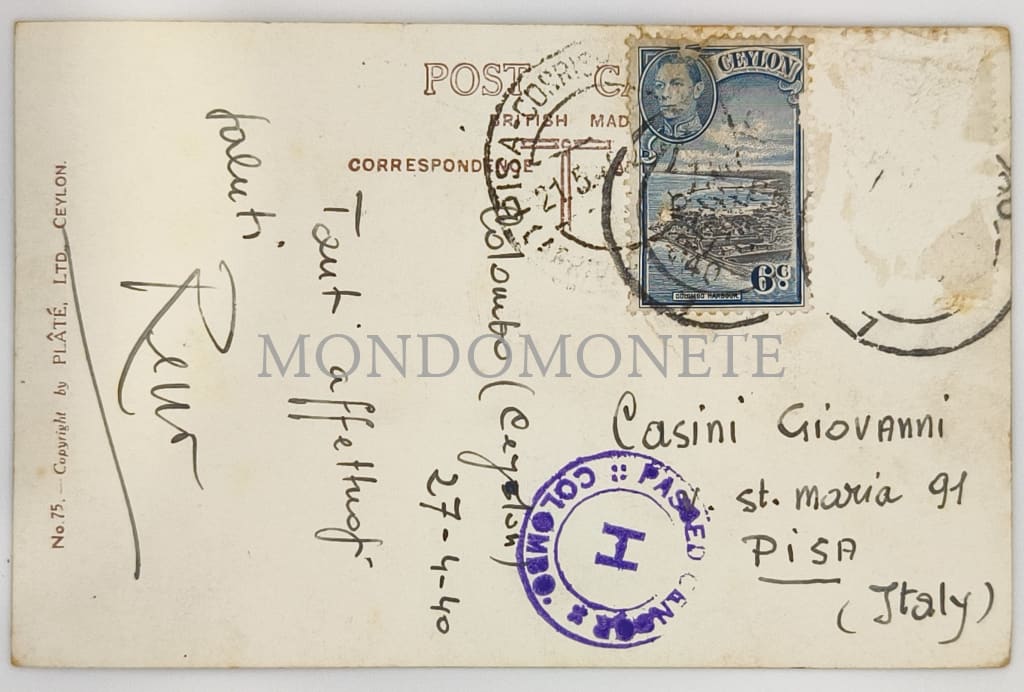 POST CA
BRITISH MAD
CORRESPONDENCE
CEYLON
COLOMBO HARBOUR
6c
PISA CORRIS
21.5
40
Colombo (Ceylon)
27-4-40
Tanti affettuosi
saluti
Remo
Casini Giovanni
st. maria 91
PISA
(Italy)
PASSED CENSOR
COLOMBO
H
No. 75. — Copyright by PLÂTÉ, LTD. CEYLON.
MONDOMONETE